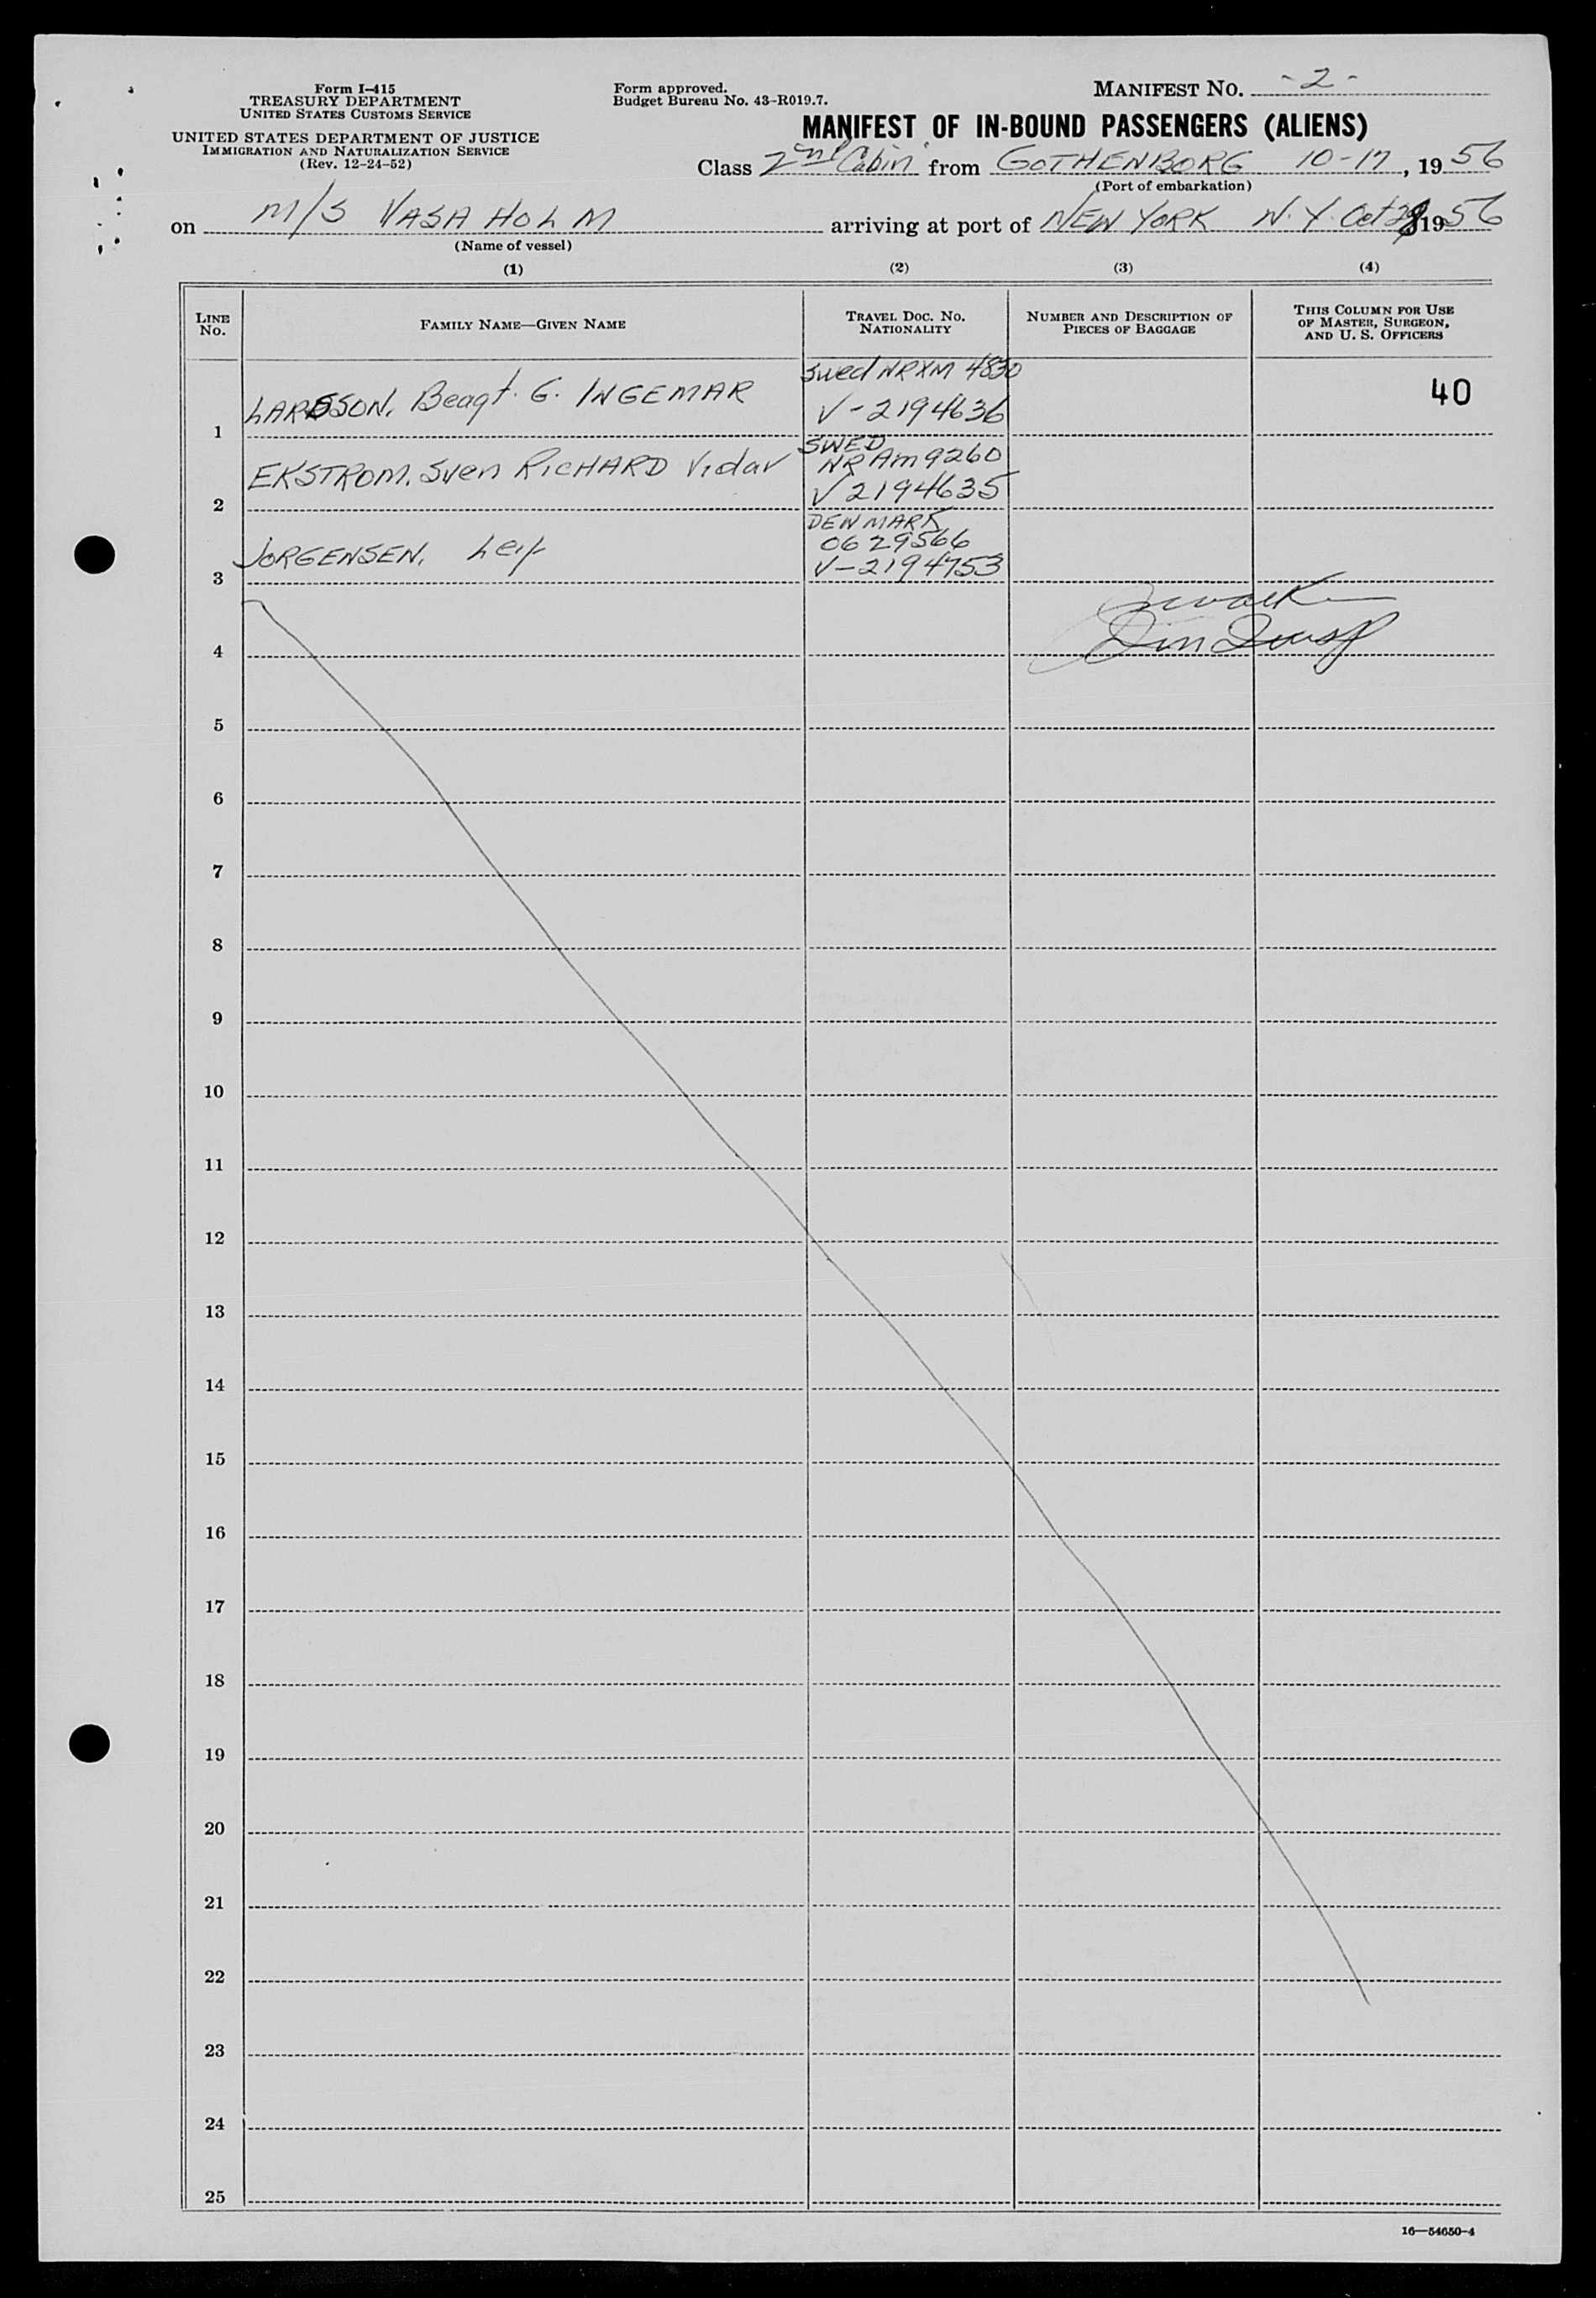 Form I-415
TREASURY DEPARTMENT
UNITED STATES CUSTOMS SERVICE
UNITED STATES DEPARTMENT OF JUSTICE
IMMIGRATION AND NATURALIZATION SERVICE
(Rev. 12-24-52)
Form approved.
Budget Bureau No. 43-R019.7.
MANIFEST NO. -2-
MANIFEST OF IN-BOUND PASSENGERS (ALIENS)
Class 2nd Cabin from GOTHENBORG 10-17, 1956
(Port of embarkation)
on M/S VASAHOLM arriving at port of NEW YORK N.Y. Oct 28 1956
(Name of vessel)
(1) (2) (3) (4)
LINE No.
FAMILY NAME—GIVEN NAME
TRAVEL DOC. NO. NATIONALITY
NUMBER AND DESCRIPTION OF PIECES OF BAGGAGE
THIS COLUMN FOR USE OF MASTER, SURGEON, AND U. S. OFFICERS
Swed NRXM 4830
1 LARSSON, Bengt. G. INGEMAR V-2194636 40
SWED
NR Am 9260
2 EKSTROM, Sven RICHARD Vidar V 2194635
DENMARK
0629566
3 JORGENSEN, Leif V-2194753
4
5
6
7
8
9
10
11
12
13
14
15
16
17
18
19
20
21
22
23
24
25
16—54650-4